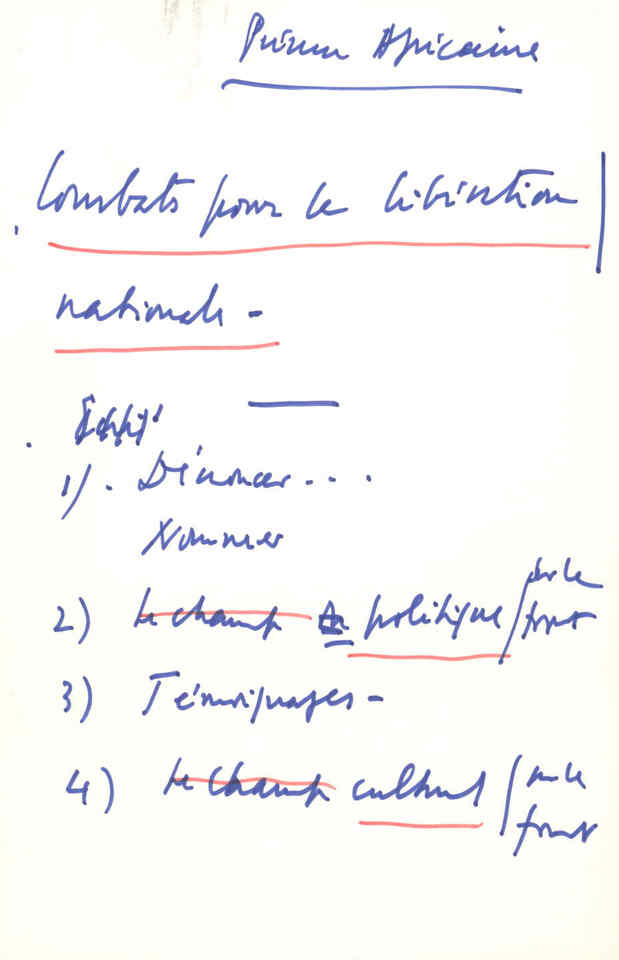 Présence Africaine
Combats pour la libération
nationale -
1) . Dénoncer . . .
Nommer
2) Le champ politique / sur le
front
3) Témoignages -
4) Le champ culturel / sur le
front